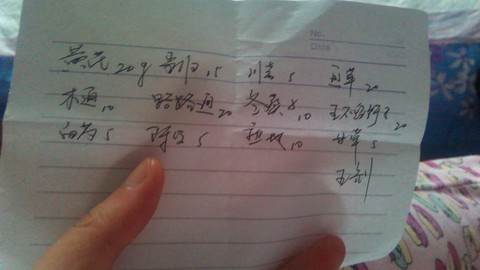 No.
Date
黄芪20g 当归15 川芎5 草20
木通10 路路通20 10 王不留行20
白芍5 陈皮5 10 甘草5
五剂